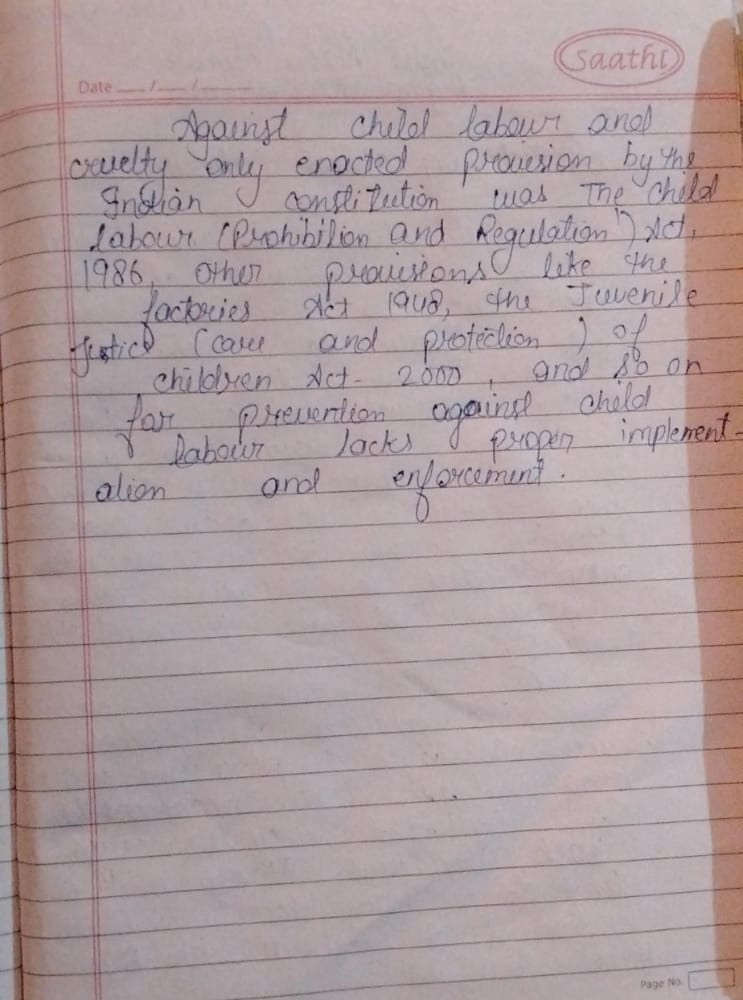 Saathi
Date ___/___/______
Against child labour and
cruelty only enacted provision by the
Indian constitution was The child
labour (Prohibition and Regulation) Act,
1986, other provisions like the
factories Act 1948, the Juvenile
Justice (care and protection) of
children Act- 2000, and so on
for prevention against child
labour lacks proper implement-
ation and enforcement.
Page No.